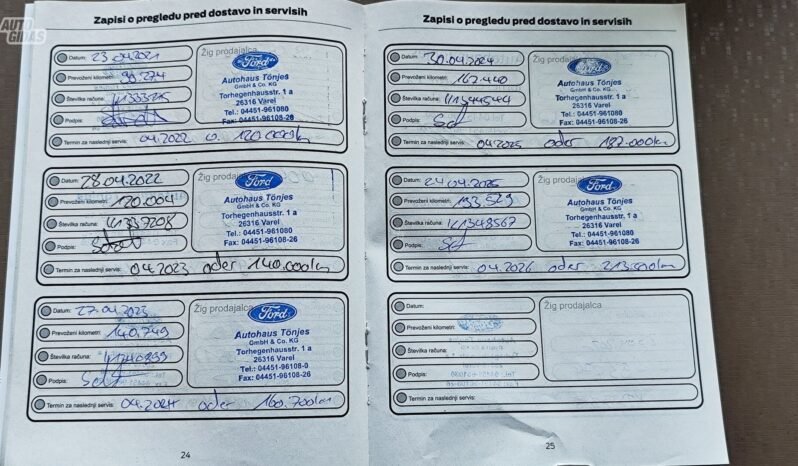 AUTO
GIDAS
Zapisi o pregledu pred dostavo in servisih
Datum: 23.04.2021
Prevoženi kilometri:
Številka računa:
Podpis:
Termin za naslednji servis: 04.2022 o. 120.000km
Žig prodajalca
Ford
Autohaus Tönjes
GmbH & Co. KG
Torhegenhausstr. 1 a
26316 Varel
Tel.: 04451-961080
Fax: 04451-96108-26
Datum: 28.04.2022
Prevoženi kilometri: 120.004
Številka računa: 41337208
Podpis:
Termin za naslednji servis: 04.2023 oder 140.000km
Žig prodajalca
Ford
Autohaus Tönjes
GmbH & Co. KG
Torhegenhausstr. 1 a
26316 Varel
Tel.: 04451-961080
Fax: 04451-96108-26
Datum: 27.04.2023
Prevoženi kilometri: 140.749
Številka računa:
Podpis:
Termin za naslednji servis: 04.2024 oder 160.700km
Žig prodajalca
Ford
Autohaus Tönjes
GmbH & Co. KG
Torhegenhausstr. 1 a
26316 Varel
Tel.: 04451-96108-0
Fax: 04451-96108-26
24
Zapisi o pregledu pred dostavo in servisih
Datum: 30.04.2024
Prevoženi kilometri: 167.440
Številka računa: 41344544
Podpis:
Termin za naslednji servis: 04.2025 oder 187.000km
Žig prodajalca
Ford
Autohaus Tönjes
GmbH & Co. KG
Torhegenhausstr. 1 a
26316 Varel
Tel.: 04451-961080
Fax: 04451-96108-26
Datum: 24.04.2025
Prevoženi kilometri: 193.529
Številka računa: 41348567
Podpis:
Termin za naslednji servis: 04.2026 oder 213.500km
Žig prodajalca
Ford
Autohaus Tönjes
GmbH & Co. KG
Torhegenhausstr. 1 a
26316 Varel
Tel.: 04451-961080
Fax: 04451-96108-26
Datum:
Prevoženi kilometri:
Številka računa:
Podpis:
Termin za naslednji servis:
Žig prodajalca
25